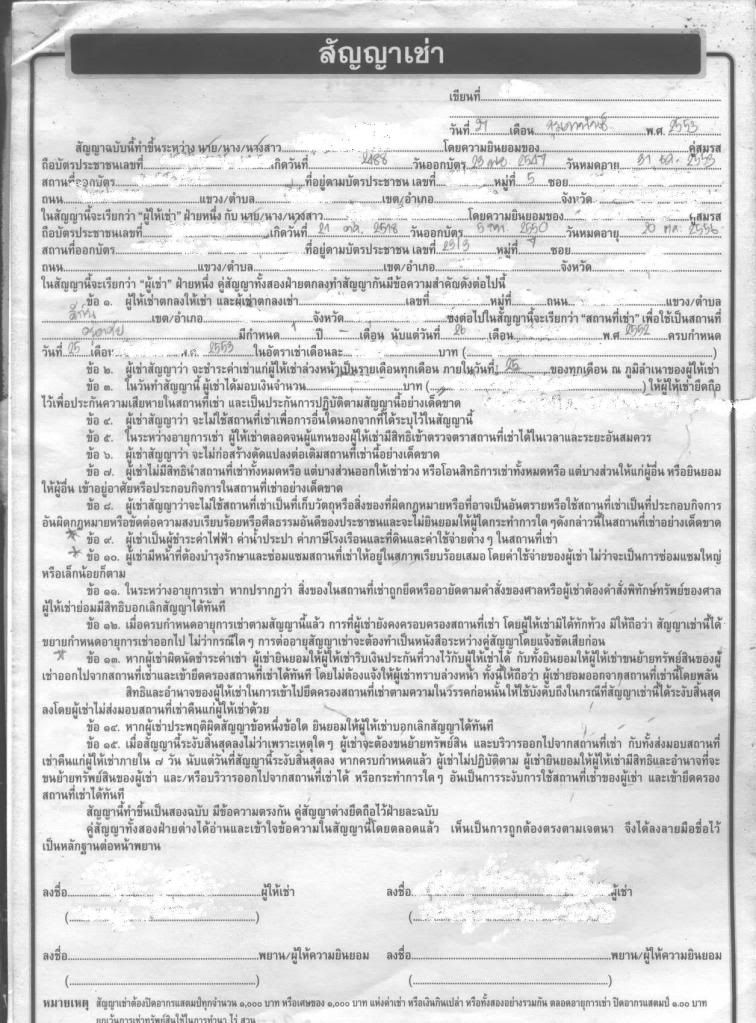 สัญญาเช่า
เขียนที่
วันที่ 21 เดือน กุมภาพันธ์ พ.ศ. 2553
สัญญาฉบับนี้ทำขึ้นระหว่าง นาย/นาง/นางสาว โดยความยินยอมของ คู่สมรส
ถือบัตรประชาชนเลขที่ เกิดวันที่ 2488 วันออกบัตร 2547 วันหมดอายุ 31
สถานที่ออกบัตร ที่อยู่ตามบัตรประชาชน เลขที่ หมู่ที่ 5 ซอย
ถนน แขวง/ตำบล เขต/อำเภอ จังหวัด
ในสัญญานี้จะเรียกว่า "ผู้ให้เช่า" ฝ่ายหนึ่ง กับ นาย/นาง/นางสาว โดยความยินยอมของ คู่สมรส
ถือบัตรประชาชนเลขที่ เกิดวันที่ 21 2518 วันออกบัตร 5 2550 วันหมดอายุ 20 2556
สถานที่ออกบัตร ที่อยู่ตามบัตรประชาชน เลขที่ หมู่ที่ ซอย
ถนน แขวง/ตำบล เขต/อำเภอ จังหวัด
ในสัญญานี้จะเรียกว่า "ผู้เช่า" ฝ่ายหนึ่ง คู่สัญญาทั้งสองฝ่ายตกลงทำสัญญากันมีข้อความสำคัญดังต่อไปนี้
ข้อ ๑. ผู้ให้เช่าตกลงให้เช่า และผู้เช่าตกลงเช่า เลขที่ หมู่ที่ ถนน แขวง/ตำบล
เขต/อำเภอ จังหวัด ซึ่งต่อไปในสัญญานี้จะเรียกว่า "สถานที่เช่า" เพื่อใช้เป็นสถานที่
มีกำหนด 1 ปี - เดือน นับแต่วันที่ 26 เดือน พ.ศ 2552 ครบกำหนด
วันที่ 25 เดือน พ.ศ. 2553 ในอัตราเช่าเดือนละ บาท ( )
ข้อ ๒. ผู้เช่าสัญญาว่า จะชำระค่าเช่าแก่ผู้ให้เช่าล่วงหน้าเป็นรายเดือนทุกเดือน ภายในวันที่ 25 ของทุกเดือน ณ ภูมิลำเนาของผู้ให้เช่า
ข้อ ๓. ในวันทำสัญญานี้ ผู้เช่าได้มอบเงินจำนวน บาท ( ) ให้ผู้ให้เช่ายึดถือ
ไว้เพื่อประกันความเสียหายในสถานที่เช่า และเป็นประกันการปฏิบัติตามสัญญานี้อย่างเด็ดขาด
ข้อ ๔. ผู้เช่าสัญญาว่า จะไม่ใช้สถานที่เช่าเพื่อการอื่นใดนอกจากที่ได้ระบุไว้ในสัญญานี้
ข้อ ๕. ในระหว่างอายุการเช่า ผู้ให้เช่าตลอดจนผู้แทนของผู้ให้เช่ามีสิทธิเข้าตรวจตราสถานที่เช่าได้ในเวลาและระยะอันสมควร
ข้อ ๖. ผู้เช่าสัญญาว่า จะไม่ก่อสร้างดัดแปลงต่อเติมสถานที่เช่านี้อย่างเด็ดขาด
ข้อ ๗. ผู้เช่าไม่มีสิทธินำสถานที่เช่าทั้งหมดหรือ แต่บางส่วนออกให้เช่าช่วง หรือโอนสิทธิการเช่าทั้งหมดหรือ แต่บางส่วนให้แก่ผู้อื่น หรือยินยอม
ให้ผู้อื่น เข้าอยู่อาศัยหรือประกอบกิจการในสถานที่เช่าอย่างเด็ดขาด
ข้อ ๘. ผู้เช่าสัญญาว่าจะไม่ใช้สถานที่เช่าเป็นที่เก็บวัตถุหรือสิ่งของที่ผิดกฎหมายหรือที่อาจเป็นอันตรายหรือใช้สถานที่เช่าเป็นที่ประกอบกิจการ
อันผิดกฎหมายหรือขัดต่อความสงบเรียบร้อยหรือศีลธรรมอันดีของประชาชนและจะไม่ยินยอมให้ผู้ใดกระทำการใด ๆดังกล่าวนี้ในสถานที่เช่าอย่างเด็ดขาด
ข้อ ๙. ผู้เช่าเป็นผู้ชำระค่าไฟฟ้า ค่าน้ำประปา ค่าภาษีโรงเรือนและที่ดินและค่าใช้จ่ายต่าง ๆ ในสถานที่เช่า
ข้อ ๑๐. ผู้เช่ามีหน้าที่ต้องบำรุงรักษาและซ่อมแซมสถานที่เช่าให้อยู่ในสภาพเรียบร้อยเสมอ โดยค่าใช้จ่ายของผู้เช่า ไม่ว่าจะเป็นการซ่อมแซมใหญ่
หรือเล็กน้อยก็ตาม
ข้อ ๑๑. ในระหว่างอายุการเช่า หากปรากฏว่า สิ่งของในสถานที่เช่าถูกยึดหรืออายัดตามคำสั่งของศาลหรือผู้เช่าต้องคำสั่งพิทักษ์ทรัพย์ของศาล
ผู้ให้เช่าย่อมมีสิทธิบอกเลิกสัญญาได้ทันที
ข้อ ๑๒. เมื่อครบกำหนดอายุการเช่าตามสัญญานี้แล้ว การที่ผู้เช่ายังคงครอบครองสถานที่เช่า โดยผู้ให้เช่ามิได้ทักท้วง มิให้ถือว่า สัญญาเช่านี้ได้
ขยายกำหนดอายุการเช่าออกไป ไม่ว่ากรณีใด ๆ การต่ออายุสัญญาเช่าจะต้องทำเป็นหนังสือระหว่างคู่สัญญาโดยแจ้งชัดเสียก่อน
ข้อ ๑๓. หากผู้เช่าผิดนัดชำระค่าเช่า ผู้เช่ายินยอมให้ผู้ให้เช่าริบเงินประกันที่วางไว้กับผู้ให้เช่าได้ กับทั้งยินยอมให้ผู้ให้เช่าขนย้ายทรัพย์สินของผู้
เช่าออกไปจากสถานที่เช่าและเข้ายึดครองสถานที่เช่าได้ทันที โดยไม่ต้องแจ้งให้ผู้เช่าทราบล่วงหน้า ทั้งนี้ให้ถือว่า ผู้เช่ายอมออกจากสถานที่เช่านี้โดยพลัน
สิทธิและอำนาจของผู้ให้เช่าในการเข้าไปยึดครองสถานที่เช่าตามความในวรรคก่อนนั้นให้ใช้บังคับถึงในกรณีที่สัญญาเช่านี้ได้ระงับสิ้นสุด
ลงโดยผู้เช่าไม่ส่งมอบสถานที่เช่าคืนแก่ผู้ให้เช่าด้วย
ข้อ ๑๔. หากผู้เช่าประพฤติผิดสัญญาข้อหนึ่งข้อใด ยินยอมให้ผู้ให้เช่าบอกเลิกสัญญาได้ทันที
ข้อ ๑๕. เมื่อสัญญานี้ระงับสิ้นสุดลงไม่ว่าเพราะเหตุใด ๆ ผู้เช่าจะต้องขนย้ายทรัพย์สิน และบริวารออกไปจากสถานที่เช่า กับทั้งส่งมอบสถานที่
เช่าคืนแก่ผู้ให้เช่าภายใน ๗ วัน นับแต่วันที่สัญญานี้ระงับสิ้นสุดลง หากครบกำหนดแล้ว ผู้เช่าไม่ปฏิบัติตาม ผู้เช่ายินยอมให้ผู้ให้เช่ามีสิทธิและอำนาจที่จะ
ขนย้ายทรัพย์สินของผู้เช่า และ/หรือบริวารออกไปจากสถานที่เช่าได้ หรือกระทำการใด ๆ อันเป็นการระงับการใช้สถานที่เช่าของผู้เช่า และเข้ายึดครอง
สถานที่เช่าได้ทันที
สัญญานี้ทำขึ้นเป็นสองฉบับ มีข้อความตรงกัน คู่สัญญาต่างยึดถือไว้ฝ่ายละฉบับ
คู่สัญญาทั้งสองฝ่ายต่างได้อ่านและเข้าใจข้อความในสัญญานี้โดยตลอดแล้ว เห็นเป็นการถูกต้องตรงตามเจตนา จึงได้ลงลายมือชื่อไว้
เป็นหลักฐานต่อหน้าพยาน
ลงชื่อ ผู้ให้เช่า ลงชื่อ ผู้เช่า
( ) ( )
ลงชื่อ พยาน/ผู้ให้ความยินยอม ลงชื่อ พยาน/ผู้ให้ความยินยอม
( ) ( )
หมายเหตุ สัญญาเช่าต้องปิดอากรแสตมป์ทุกจำนวน ๑,๐๐๐ บาท หรือเศษของ ๑,๐๐๐ บาท แห่งค่าเช่า หรือเงินกินเปล่า หรือทั้งสองอย่างรวมกัน ตลอดอายุการเช่า ปิดอากรแสตมป์ ๑.๐๐ บาท
ยกเว้นการเช่าทรัพย์สินใช้ในการทำนา ไร่ สวน